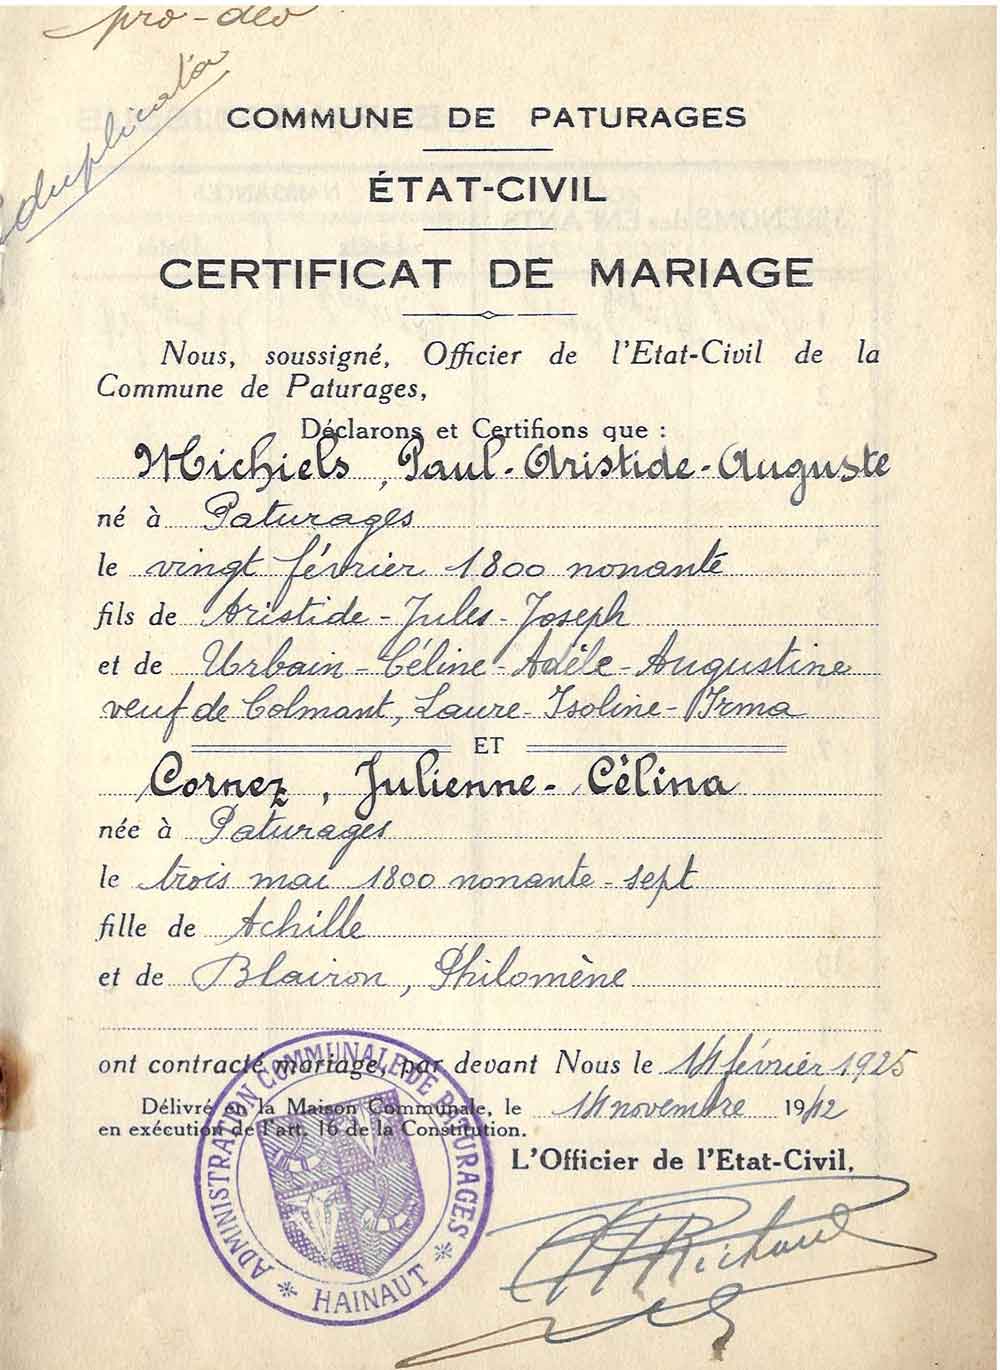 pro-deo
duplicata
COMMUNE DE PATURAGES
ÉTAT-CIVIL
CERTIFICAT DE MARIAGE
Nous, soussigné, Officier de l'Etat-Civil de la
Commune de Paturages,
Déclarons et Certifions que :
Michiels, Paul-Aristide-Auguste
né à Paturages
le vingt février 1800 nonante
fils de Aristide-Jules-Joseph
et de Urbain-Céline-Adèle-Augustine
veuf de Colmant, Laure-Isoline-Irma
ET
Cornez, Julienne-Célina
née à Paturages
le trois mai 1800 nonante-sept
fille de Achille
et de Blairon, Philomène
ont contracté mariage, par devant Nous le 14 février 1925
Délivré en la Maison Communale, le 14 novembre 1942
en exécution de l'art. 16 de la Constitution.
L'Officier de l'Etat-Civil,
ADMINISTRATION COMMUNALE DE PATURAGES
* HAINAUT *